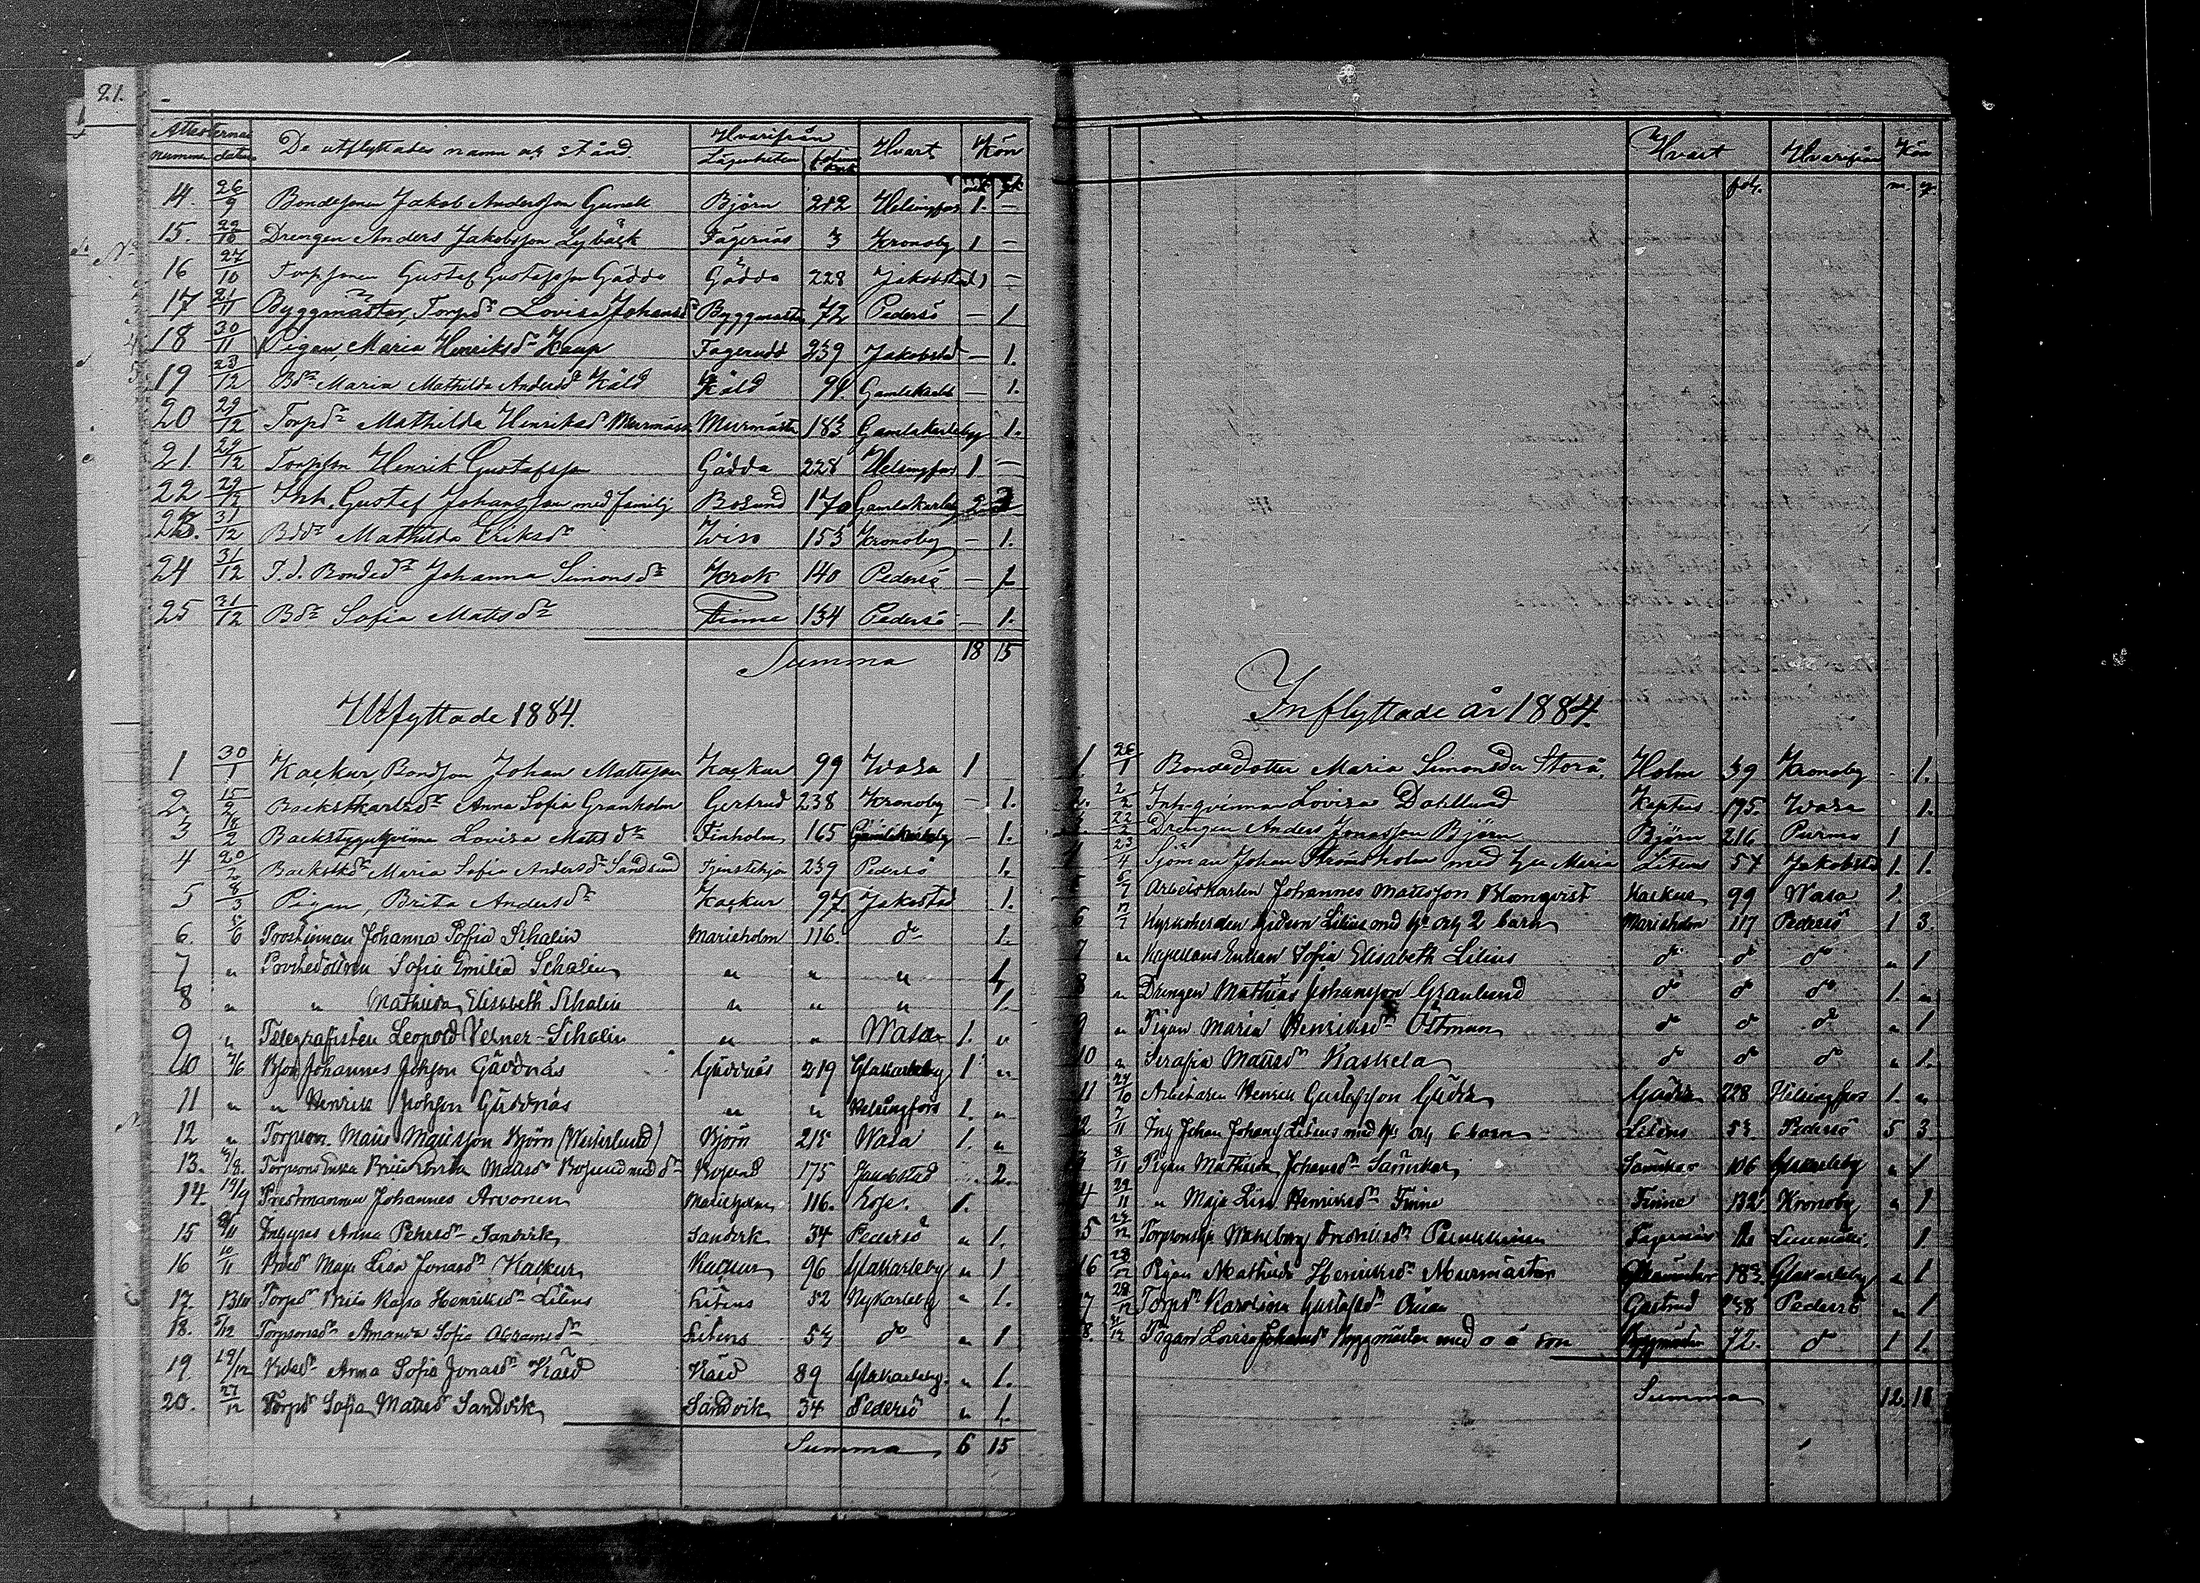 21.
Attesternas De utflyttades namn och stånd. Hvarifrån Hvart Kön
nummer datum Lägenheten mk. qk.
14. 26/9 Bondesonen Jakob Andersson Gunell Björn 212 Helsingfors 1. —
15. 22/10 Drengen Anders Jakobsson Lybäck Fagernäs 3 Kronoby 1 —
16 27/10 Torpsonen Gustaf Gustafsson Gädda Gädda 228 Jakobstad 1 —
17 21/11 Byggmästar, Torpdr Lovisa Johansdr Byggmästar 72 Pedersö — 1
18 30/11 Pigan Maria Henriksdr Kaup Fagerudd 239 Jakobstad — 1.
19 23/12 Bdr Maria Mathilda Andersdr Käld Käld 94. Gamlakarleby — 1.
20 29/12 Torpdr Mathilda Henriksdr Murmäster Murmäster 183 Gamlakarleby 1.
21. 29/12 Torpson Henrik Gustafsson Gädda 228 Helsingfors 1 —
22 29/12 Inh. Gustaf Johansson med familj Bosund 170 Gamlakarleby 2
23. 31/12 Bddr Mathilda Eriksdr Wiso 153 Kronoby — 1.
24 31/12 T. d. Bondedr Johanna Simonsdr Krok 140 Pedersö — 1
25 31/12 Bdr Sofia Mattsdr Finne 134 Pedersö — 1.
Summa 18 15
Utfyttade 1884.
1 30/1 Kackur Bondson Johan Mattsson Kackur 99 Wasa 1
2. 15/2 Backstkarlsdr Anna Sofia Granholm Gertrud 238 Kronoby — 1.
3 18/2 Backstuguqvinna Lovisa Mattsdr Finholm 165 Gamlakarleby — 1.
4 20/2 Backstkdr Maria Sofia Andersdr Sandsund 239 Pedersö 1.
5 8/3 Pigan, Brita Andersdr Kackur 97. Jakobstad 1.
6. 5/6 Prostinnan Johanna Sofia Schalin Marieholm 116. do 1.
7 " Sofia Emilia Schalin " " " 1
8 " " Mathilda Elisabeth Schalin " " " 1.
9 " Telegrafisten Leopold Verner Schalin " " Wasa 1. "
10 Bson Johannes Johsson Gäddnäs Gäddnäs 219 Glakarleby 1 "
11 " " Henrik Johsson Gäddnäs " " Helsingfors 1. "
12 " Torpson Matts Mattsson Björn (Westerlund) Björn 215 Wasa 1. "
13. /8. Torpsons Enka Brita Mattsdr Bosund med dr Bosund 175 Jakobstad 2.
14. 19/9 Prestmannen Johannes Arvonen Marieholm 116. 1.
15 /11 Anna Pehrsdr Sandvik Sandvik 34 Pedersö " 1.
16 10/11 Bdr Maja Lisa Jonasdr Kackur Kackur 96 Glakarleby " 1
17. Torpdr Brita Kajsa Henriksdr Litens Litens 52 Nykarleby " 1.
18. 5/12 Torpsonsdr Amanda Sofia Abramsdr Litens 53 do " 1
19 19/12 Bdr Anna Sofia Jonasdr Käld Käld 89 Glakarleby. " 1.
20. 27/12 Torpdr Sofia Mattsdr Sandvik Sandvik 34 Pedersö " 1.
Summa 6 15
Hvart Hvarifrån Kön
fol. m. q.
Inflyttade år 1884.
1. 26/1 Bondedotter Maria Simonsdr Storå, Holm 39 Kronoby 1.
2. 2/2 Inh.qvinnan Lovisa Dahllund Kaptens 195. Wasa 1.
3. 22/2 Drengen Anders Jonasson Björn Björn 216 Purmo 1
4 23/4 Sjöman Johan Strömsholm med hu Maria Litens 54 Jakobstad 1. 1.
6/7 Arbetskarlen Johannes Mattsson Blomqvist Kackur 99 Wasa 1.
6 Kyrkoherden Gideon Lilius med hu och 2 barn Marieholm 117 Pedersö 1 3.
7 " Kapellans Enkan Sofia Elisabeth Lilius do do do " 1
8 " Drengen Mathias Johansson Granlund do do do 1. "
9 " Pigan Maria Henriksdr Östman do do do " 1
10 " Serafia Mattsdr Kaskela do do do " 1.
11 27/10 Arbetaren Henrik Gustafsson Gädda Gädda 228 Helsingfors 1. "
2 7/11 Johan Litens med hu och 6 barn Litens 53. Pedersö 5 3.
8/11 Pigan Mathilda Johansdr Sämskar Sämskar 106 Glakarleby " 1
4 29/11 " Maja Lisa Henriksdr Finne Finne 132 Kronoby " 1
5 Fredriksdr Fagernäs 1.
16 28/12 Pigan Mathilda Henriksdr Murmästar 183 Glakarleby " 1
7 28/12 Torpdr Karolina Gustafsdr Gertrud 238 Pedersö " 1
8. 31/12 Pigan Lovisa Johansdr Byggmästar med o ä son Byggmästar 72. do 1 1.
Summa 12. 18.